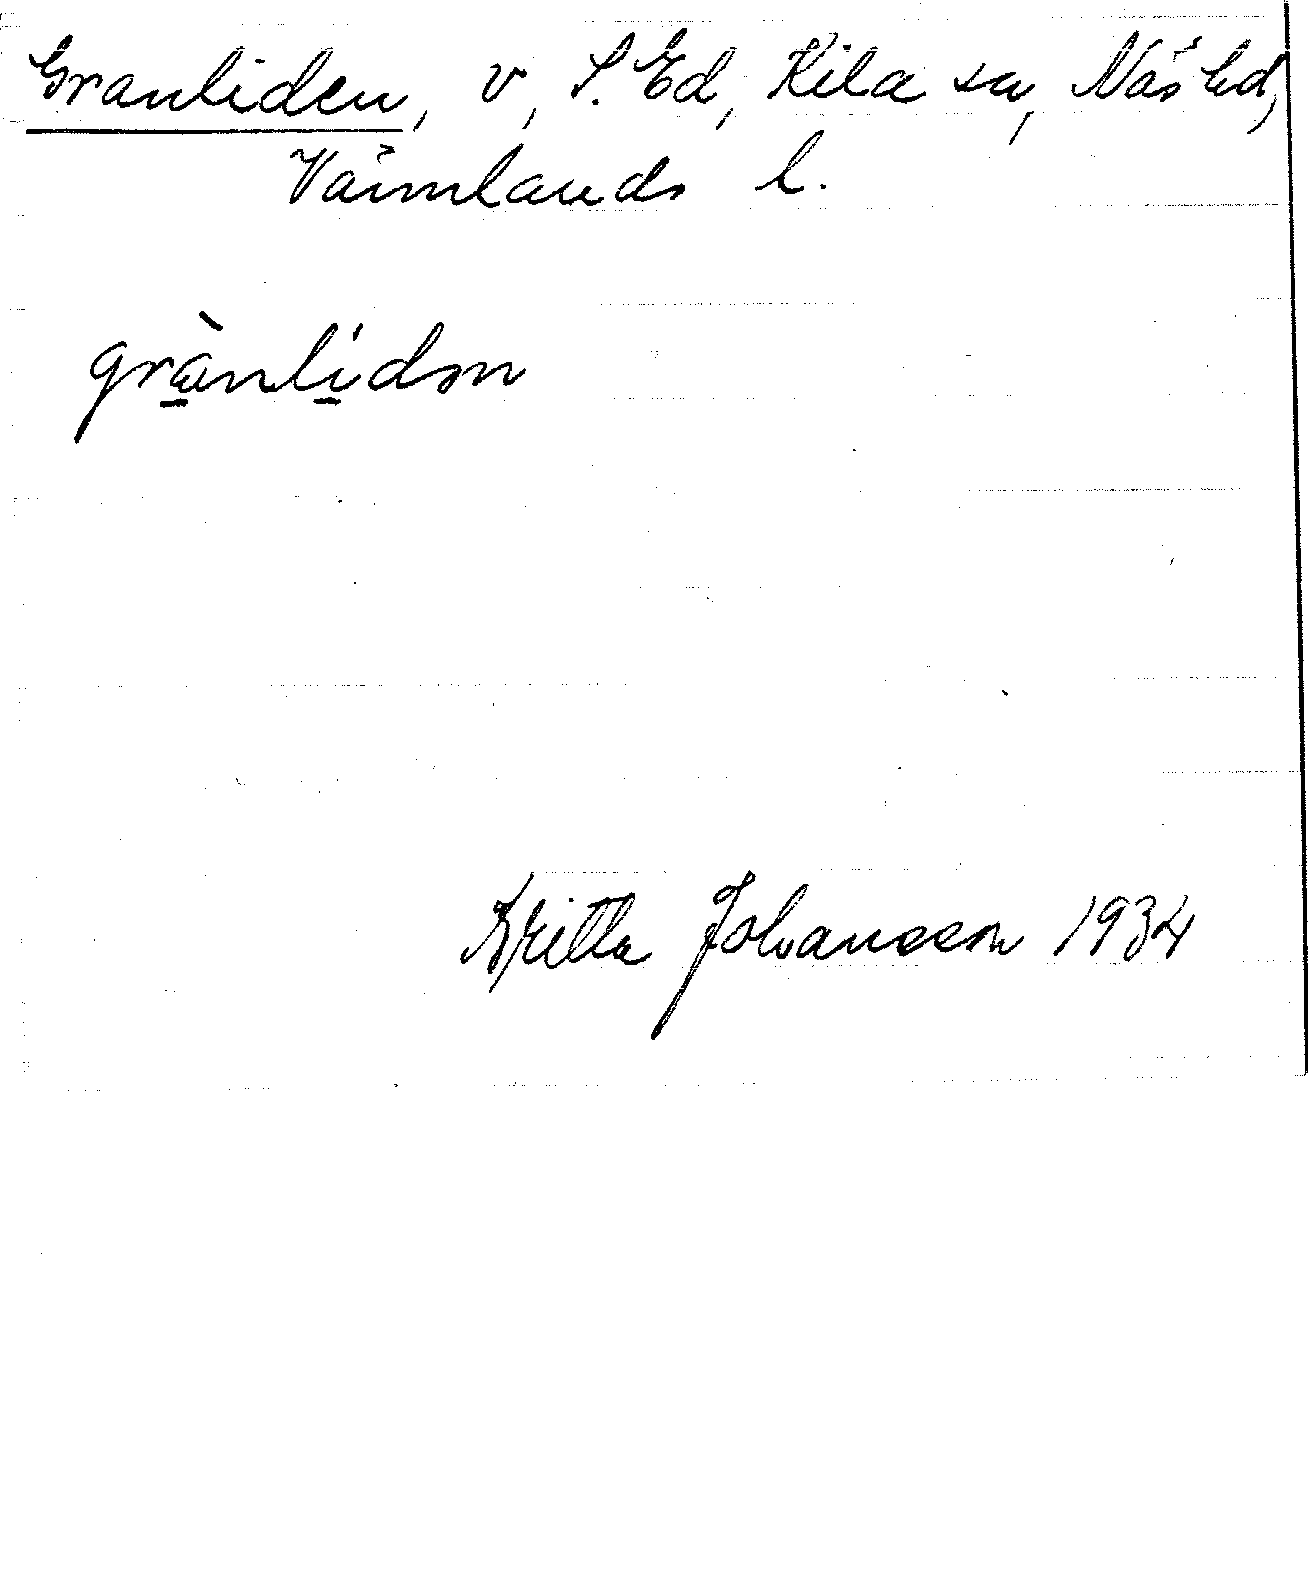 Granliden, v, S. Ed, Kila sn, Näs hd,
Värmlands l.
grànlidən
Britta Johansson 1934